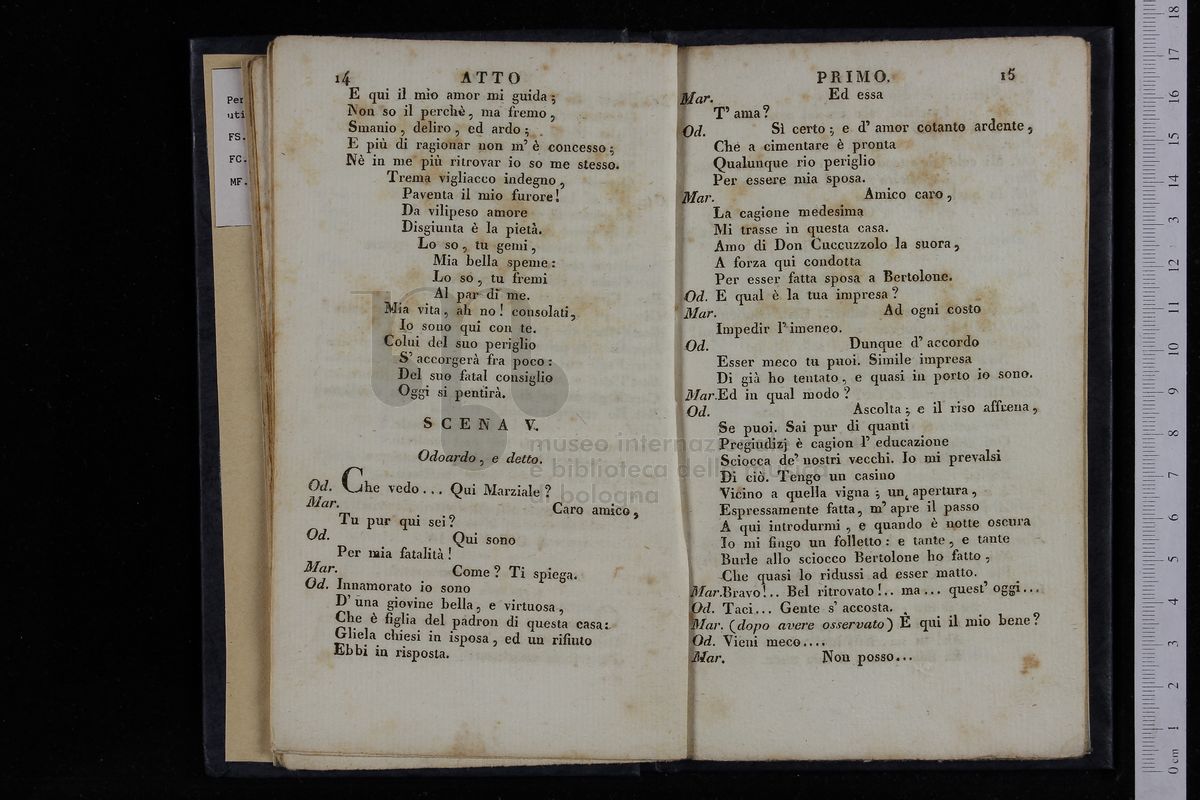 Per
uti
FS.
FC.
MF.
14 ATTO
E qui il mio amor mi guida;
Non so il perchè, ma fremo,
Smanio, deliro, ed ardo;
E più di ragionar non m' è concesso;
Nè in me più ritrovar io so me stesso.
Trema vigliacco indegno,
Paventa il mio furore!
Da vilipeso amore
Disgiunta è la pietà.
Lo so, tu gemi,
Mia bella speme:
Lo so, tu fremi
Al par di me.
Mia vita, ah no! consolati,
Io sono qui con te.
Colui del suo periglio
S' accorgerà fra poco:
Del suo fatal consiglio
Oggi si pentirà.
SCENA V.
Odoardo, e detto.
Od. Che vedo... Qui Marziale?
Mar. Caro amico,
Tu pur qui sei?
Od. Qui sono
Per mia fatalità!
Mar. Come? Ti spiega.
Od. Innamorato io sono
D' una giovine bella, e virtuosa,
Che è figlia del padron di questa casa:
Gliela chiesi in isposa, ed un rifiuto
Ebbi in risposta.
PRIMO. 15
Mar. Ed essa
T' ama?
Od. Sì certo; e d' amor cotanto ardente,
Che a cimentare è pronta
Qualunque rio periglio
Per essere mia sposa.
Mar. Amico caro,
La cagione medesima
Mi trasse in questa casa.
Amo di Don Cuccuzzolo la suora,
A forza qui condotta
Per esser fatta sposa a Bertolone.
Od. E qual è la tua impresa?
Mar. Ad ogni costo
Impedir l' imeneo.
Od. Dunque d' accordo
Esser meco tu puoi. Simile impresa
Di già ho tentato, e quasi in porto io sono.
Mar. Ed in qual modo?
Od. Ascolta; e il riso affrena,
Se puoi. Sai pur di quanti
Pregiudizj è cagion l' educazione
Sciocca de' nostri vecchi. Io mi prevalsi
Di ciò. Tengo un casino
Vicino a quella vigna; un apertura,
Espressamente fatta, m' apre il passo
A qui introdurmi, e quando è notte oscura
Io mi fingo un folletto: e tante, e tante
Burle allo sciocco Bertolone ho fatto,
Che quasi lo ridussi ad esser matto.
Mar. Bravo!.. Bel ritrovato!.. ma... quest' oggi...
Od. Taci... Gente s' accosta.
Mar. (dopo avere osservato) È qui il mio bene?
Od. Vieni meco....
Mar. Non posso...
museo internaz
e biblioteca della musica
di bologna
0 cm 1 2 3 4 5 6 7 8 9 10 11 12 13 14 15 16 17 18